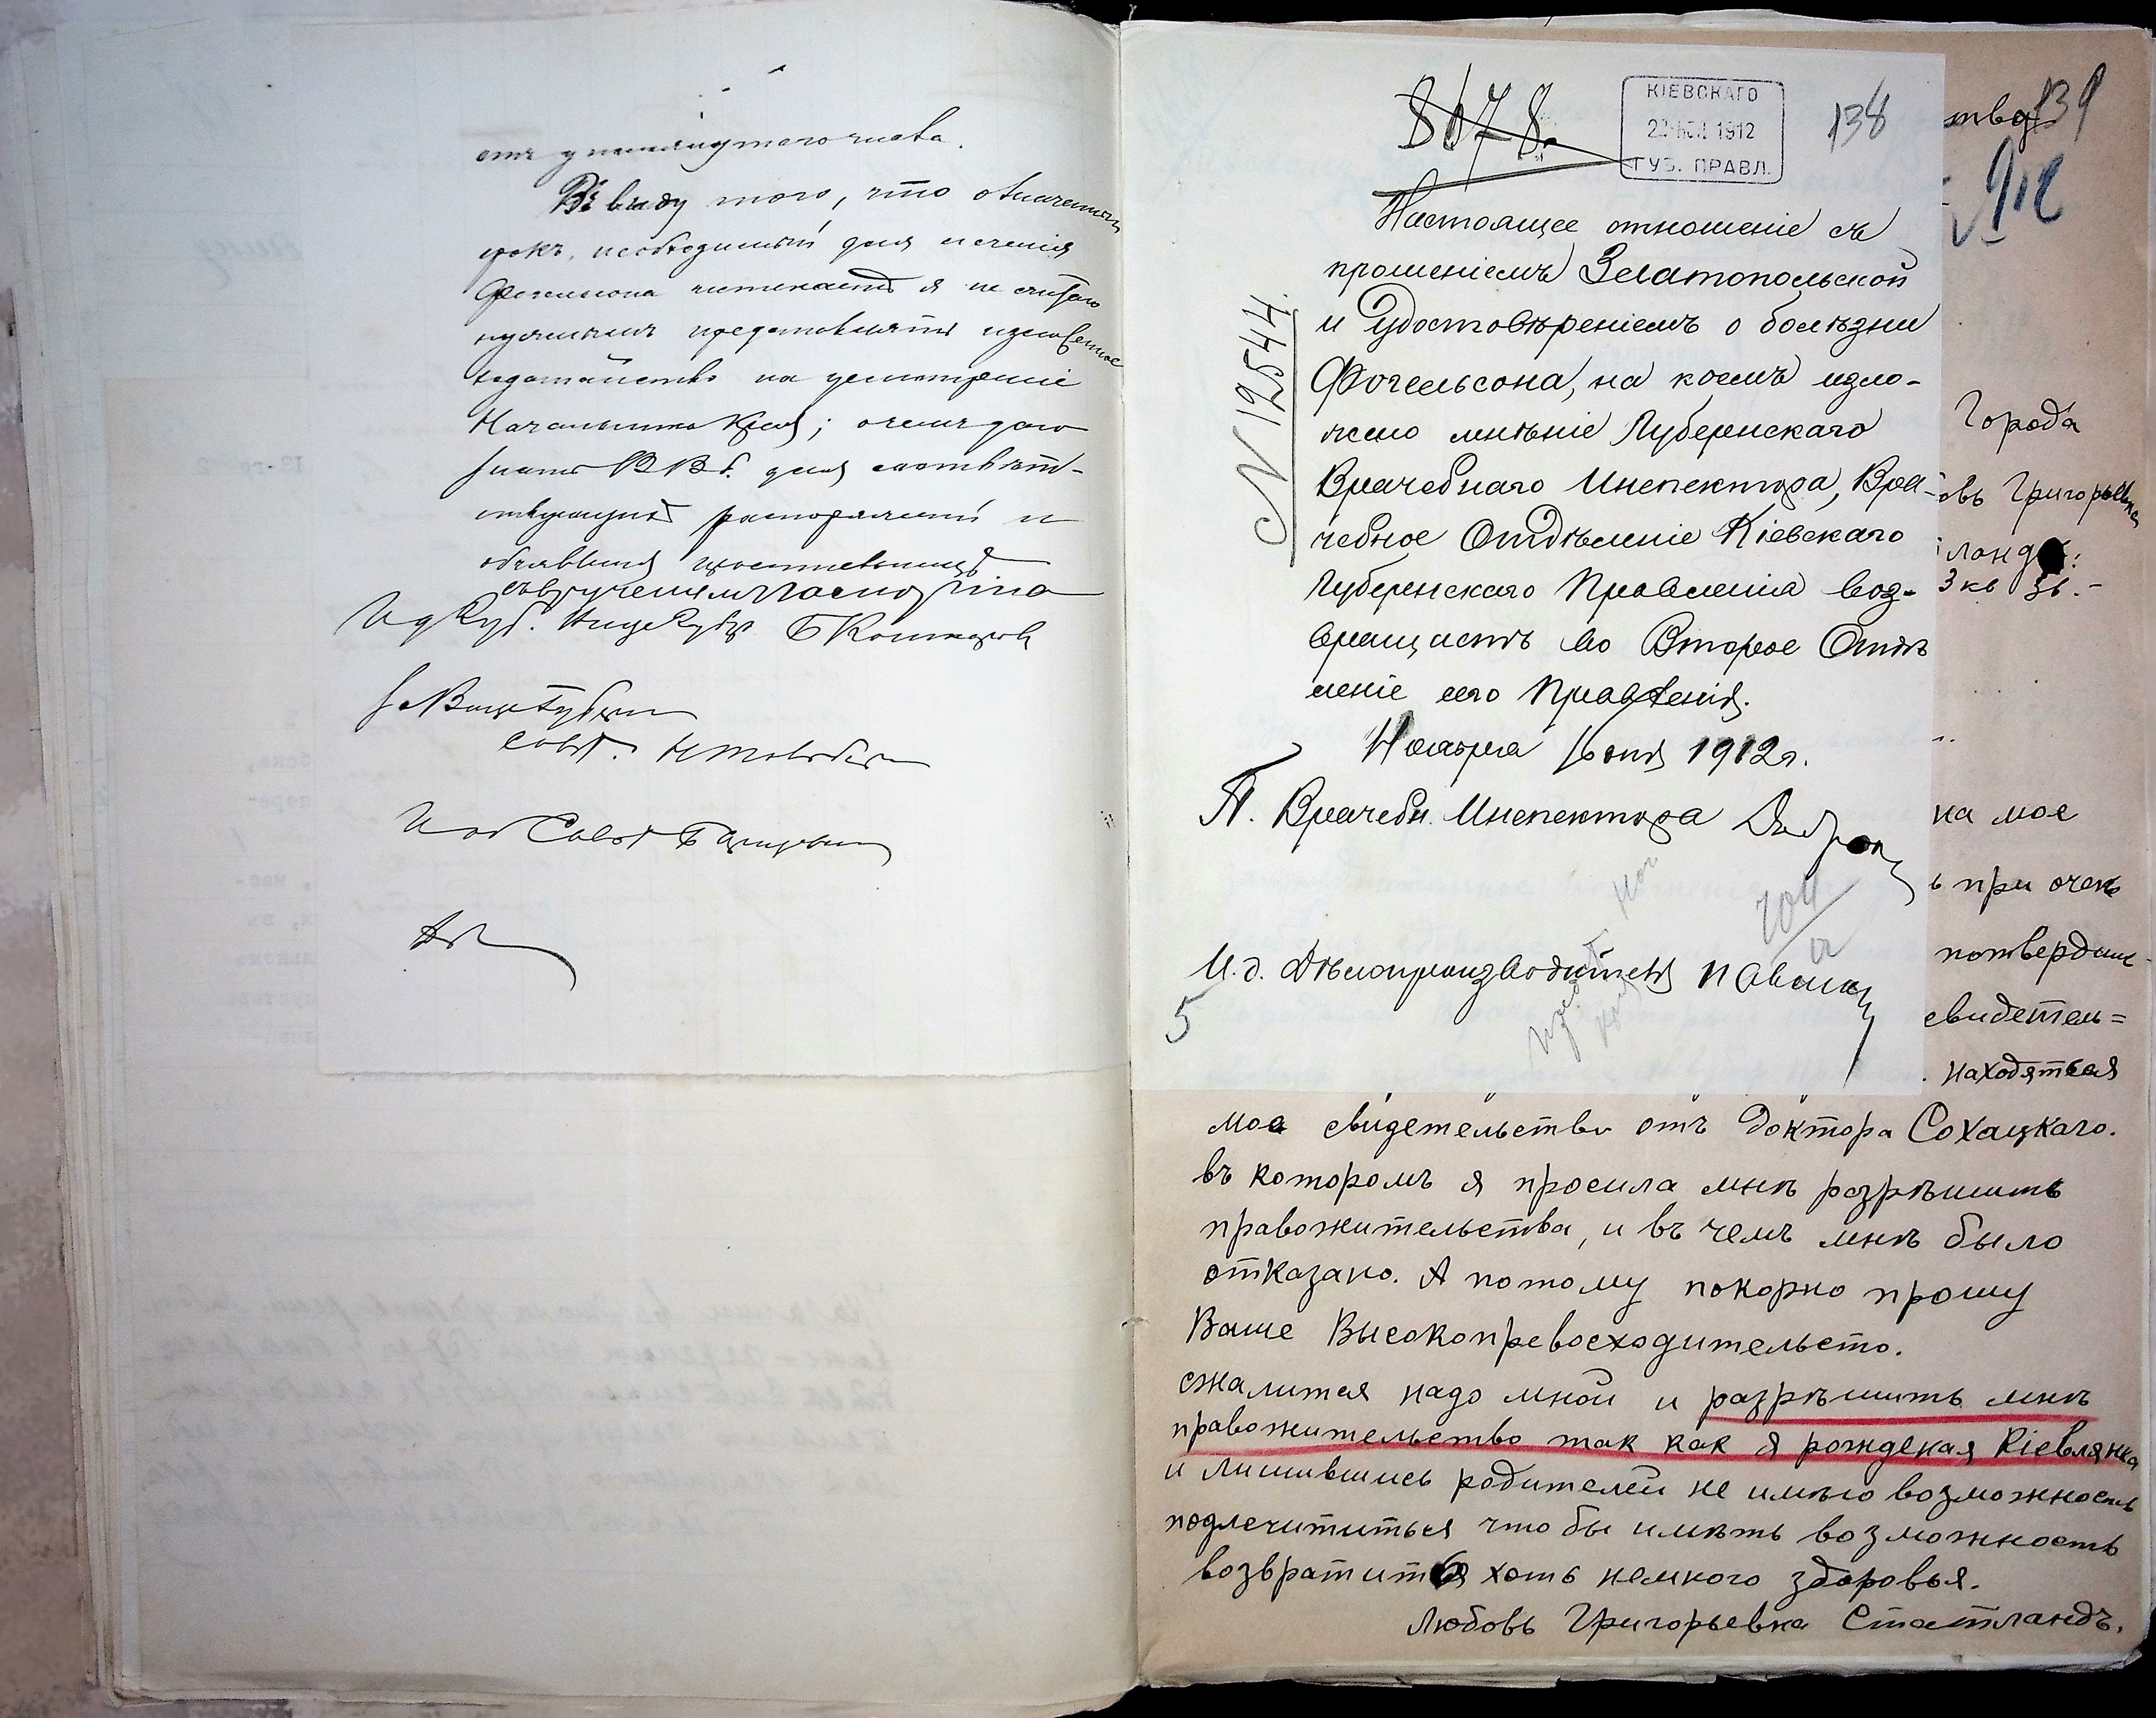 отъ упомянутаго числа.
Въ виду того, что означенный
срокъ, необходимый для леченія
Фогельсона истекаетъ я не считаю
нужнымъ представлять изложенное
ходатайство на усмотреніе
Начальника Края; о чемъ даю
знать В В б. для соотвѣт-
ствующихъ распоряженій и
объявленія просительницѣ
съ врученіемъ паспорта
И д Губ.
За Вице Губ
Совѣт.
И об Совѣт
8678.
КІЕВСКАГО
22 НОЯ 1912
ГУБ. ПРАВЛ.
138
N 12544.
Настоящее отношеніе съ
прошеніемъ Златопольской
и удостовѣреніемъ о болѣзни
Фогельсона, на коемъ изло-
жено мнѣніе Губернскаго
Врачебнаго Инспектора, Вра-
чебное Отдѣленіе Кіевскаго
Губернскаго Правленія воз-
вращаетъ во Второе Отдѣ
леніе сего Правленія.
Ноября 16 дня 1912 г.
П. Врачебн. Инспектора
И. д. Дѣлопроизводителя
5
ства 139
Города
овь Григорьевна
ланд
3 кв 36.-
на мое
ь при очень
потвердит-
свидетель=
находяться
мое свидетельство отъ доктора Сохацкаго.
въ которомъ я просила мнѣ разрѣшить
правожительства, и въ чемъ мнѣ было
отказано. А потому покорно прошу
Ваше Высокопревосходительсто.
сжалится надо мной и разрѣшить мнѣ
правожительство так как я рожденая Кіевлянка
и лишившись родителей не имѣю возможность
подлечититься что бы имѣть возможность
возвратить хоть немного здоровья.
Любовь Григорьевна Статландъ.